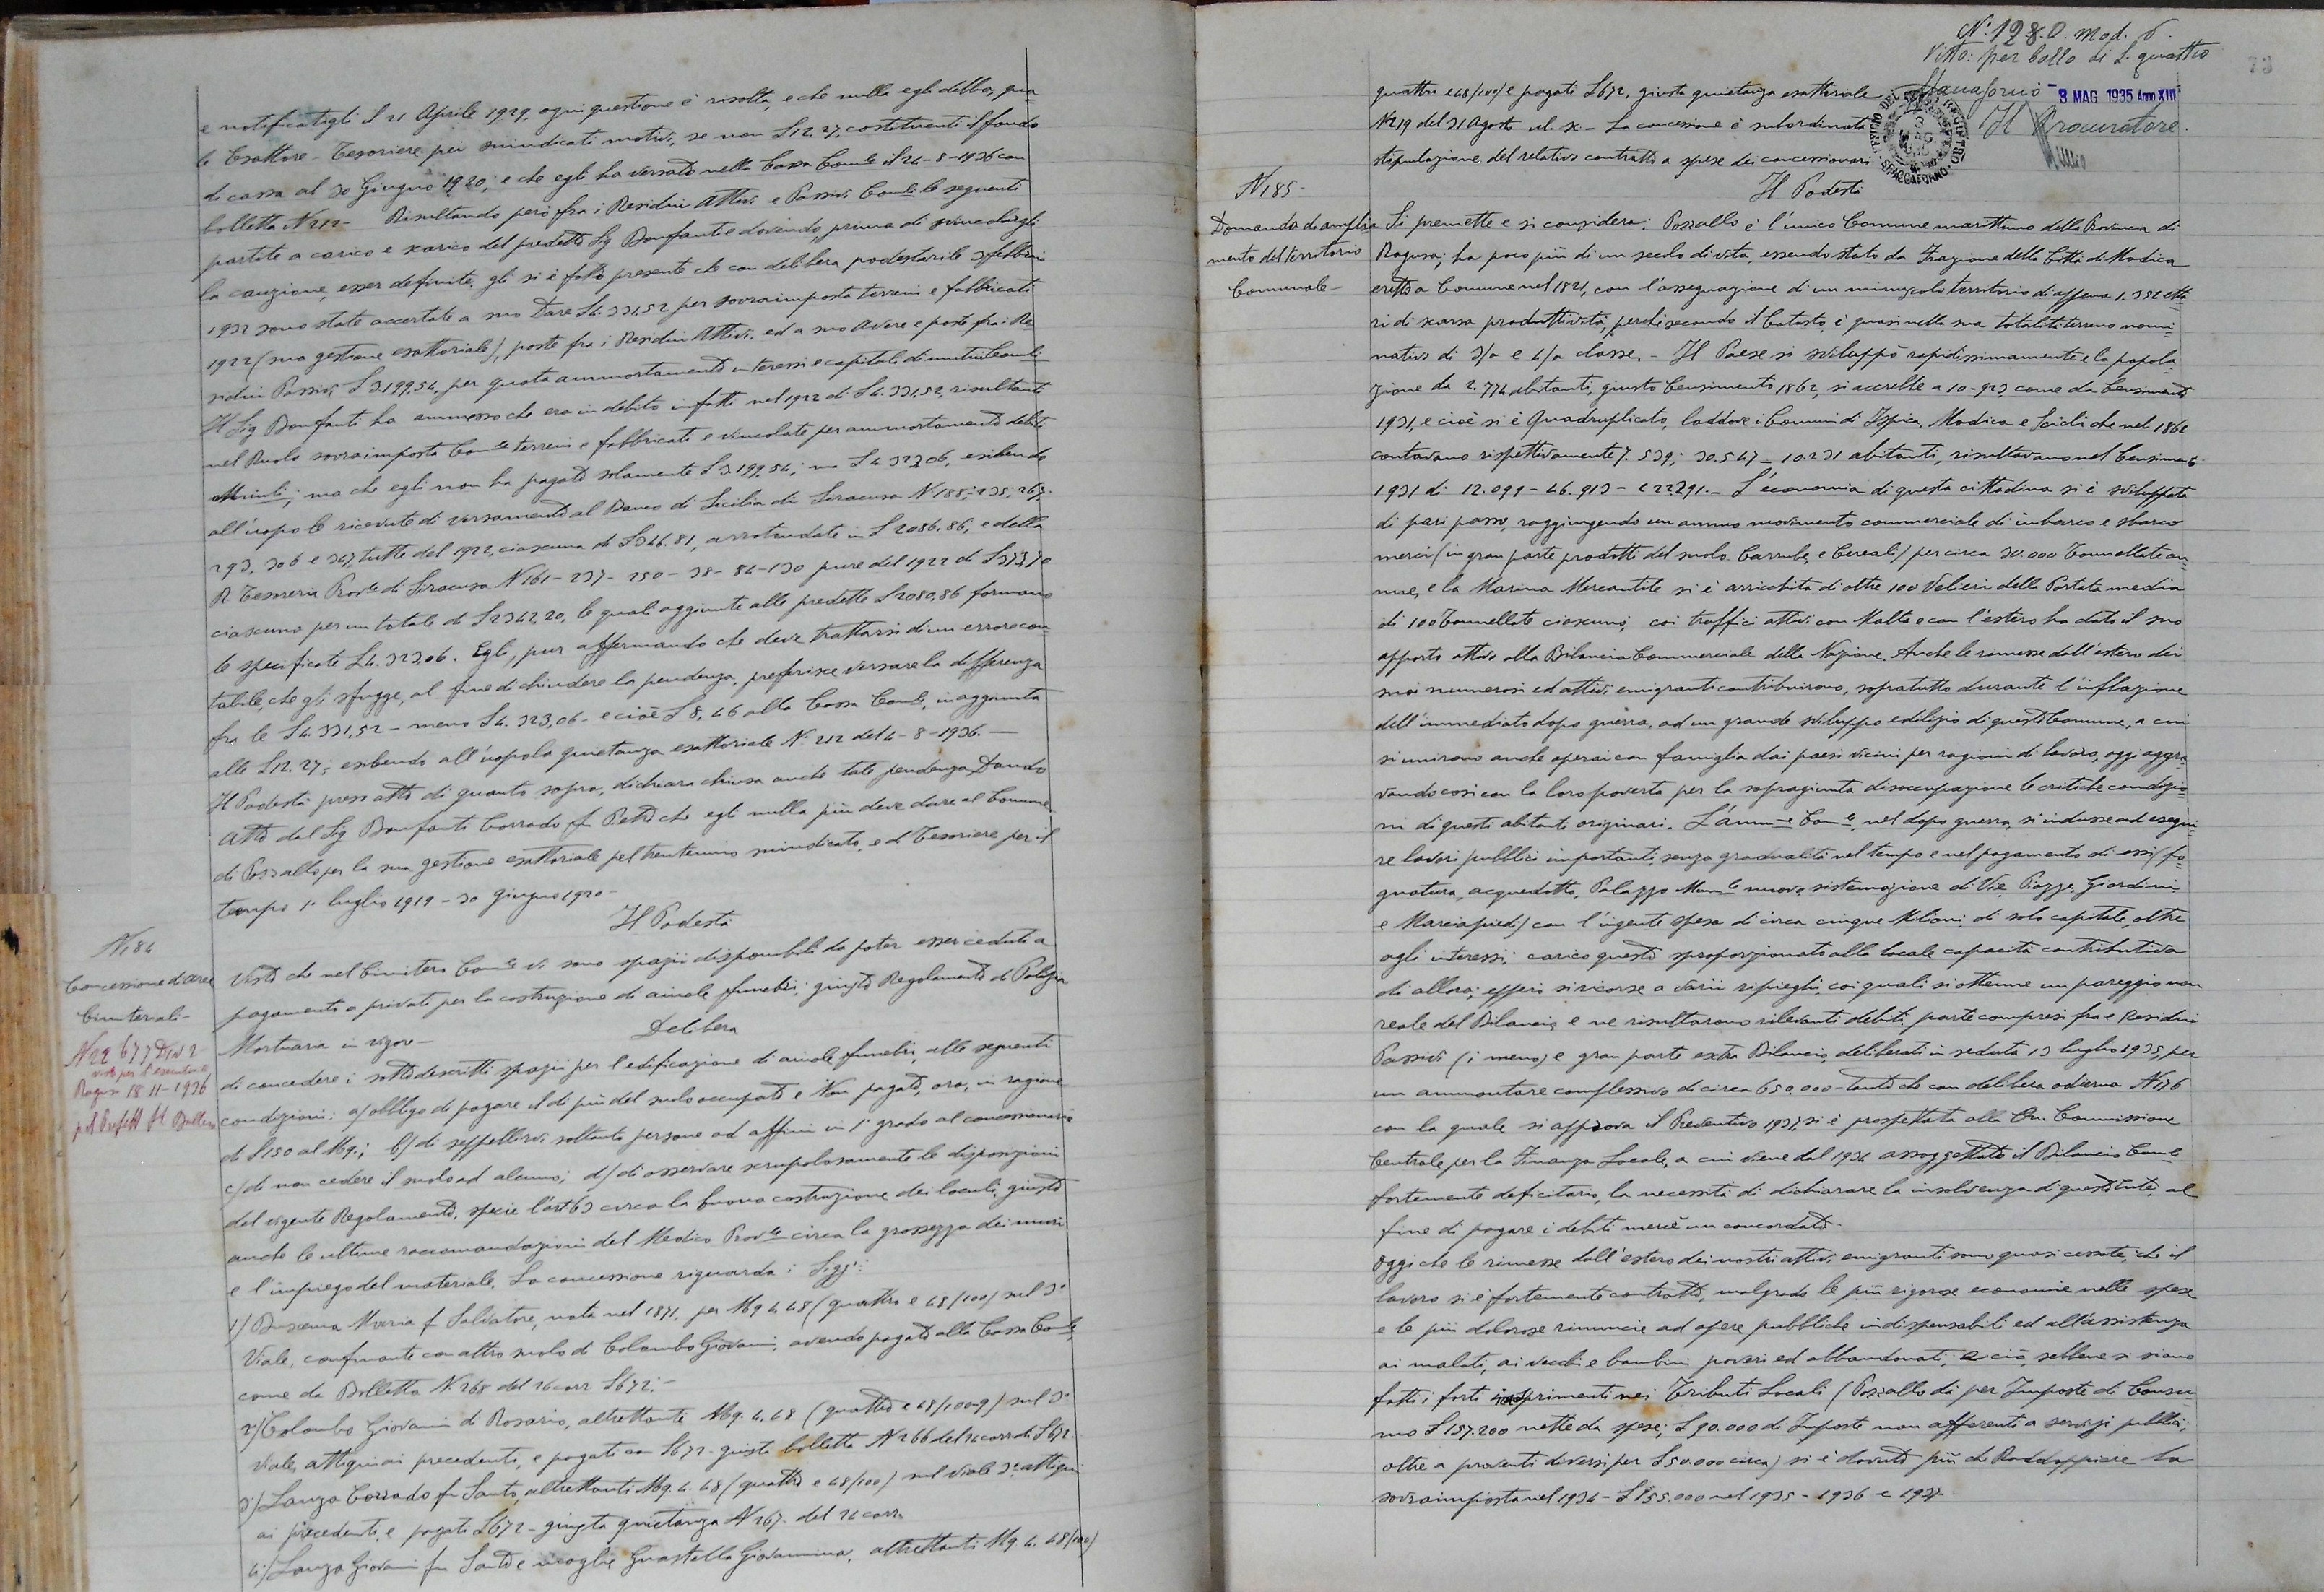 e notificatigli il 21 Aprile 1929, ogni questione è risolta, e che nulla egli debba, qua-
le Esattore-Tesoriere pei suindicati motivi, se non £ 12.27, costituenti il fondo
di cassa al 30 Giugno 1920; e che egli ha versato nella Cassa Comle il 24-8-1936 con
bolletta N 212- Risultando però fra i Residui Attivi e Passivi Comli le seguenti
partite a carico e scarico del predetto Sig Bonfanti e dovendo, prima di svincolargli
la cauzione, esser definite, gli si è fatto presente che con delibera podestarile 3 febbraio
1932 sono state accertate a suo Dare £ 4.331,52 per sovraimposta terreni e fabbricati
1922 (sua gestione esattoriale), poste fra i Residui Attivi, ed a suo Avere e poste fra i Re-
sidui Passivi £ 3.199,54, per quota ammortamento interessi e capitali di mutui Comli
Il Sig Bonfanti ha ammesso che era in debito infatti nel 1922 di £ 4.331,52, risultanti
nel Ruolo sovraimposta Comle terreni e fabbricati e vincolate per ammortamento debiti
Mutui; ma che egli non ha pagato solamente £ 3.199,54; ma £ 4.323,06, esibendo
all'uopo le ricevute di versamento al Banco di Sicilia di Siracusa N 185; 235; 267;
293, 306 e 347, tutte del 1922, ciascuna di £ 346.81, arrotondate in £ 2086,86, e della
R Tesoreria Provle di Siracusa N 161-237-250-38-84-130 pure del 1922 di £ 373,70
ciascuno per un totale di £ 2342,20, le quali aggiunte alle predette £ 2080,86 formano
le specificate £ 4.323,06. Egli, pur affermando che deve trattarsi di un errore con-
tabile, che gli sfugge, al fine di chiudere la pendenza, preferisce versare la differenza
fra le £ 4.331,52 - meno £ 4.323,06 - e cioè £ 8,46 alla Cassa Comle, in aggiunta
alle £ 12.27; esibendo all'uopo la quietanza esattoriale N. 212 del 4-8-1936.-
Il Podestà preso atto di quanto sopra, dichiara chiusa anche tale pendenza, Dando
Atto dal Sig Bonfanti Corrado fu Pietro che egli nulla più deve dare al Comune
di Pozzallo per la sua gestione esattoriale pel trentennio suindicato, e di Tesoriere per il
tempo 1° luglio 1919-30 giugno 1920-
Il Podestà
N 184
Concessione di aree
Cimiteriali-
N 22677 Div 2
visto per l'esecutorietà
Ragusa 18-11-1936
pel Prefetto
Visto che nel Cimitero Comle vi sono spazii disponibili da poter esser ceduti a
pagamento a privati per la costruzione di aiuole funebri; giusto Regolamento di Polizia
Mortuaria in vigore-
Delibera
di concedere i sottodescritti spazii per l'edificazione di aiuole funebri, alle seguenti
condizioni: a) obbligo di pagare il di più del suolo occupato e Non pagato, ora, in ragione
di £ 150 al Mq.; b) di seppellirvi soltanto persone ed affini in 1° grado al concessionario
c) di non cedere il suolo ad alcuno; d) di osservare scrupolosamente le disposizioni
del vigente Regolamento, specie l'art 63 circa la buona costruzione dei loculi, giusto
anche le ultime raccomandazioni del Medico Provle circa la grossezza dei muri
e l'impiego del materiale. La concessione riguarda i Sigg.ri:
1) Buscema Maria fu Salvatore, nata nel 1871, per Mq 4.48 (quattro e 48/100) sul 3°
Viale, confinante con altro suolo di Colombo Giovanni, avendo pagato alla Cassa Comle
come da Bolletta N. 268 del 26 corr £ 672.-
2) Colombo Giovanni di Rosario, altrettante Mq. 4.48 (quattro e 48/100) sul 3°
Viale, attigui ai precedenti, e pagati con £ 672 - giusta bolletta N 266 del 26 corr di £ 672
3) Lanza Corrado fu Santo, altrettanti Mq. 4.48 (quattro e 48/100) sul viale 3° attigui
ai precedenti, e pagati £ 672 - giusta quietanza N 267 del 26 corr.
4) Lanza Giovanni fu Santo e moglie Guastella Giovannina, altrettanti Mq 4.48/100)
N: 128.D. mod. 6.
Visto: per bollo di £. quattro
Spaccaforno - 3 MAG 1935 Anno XIII
Il Procuratore.
73
UFFICIO DEL REGISTRO SPACCAFORNO
quattro e 48/100) e pagati £ 672, giusta quietanza esattoriale
N 219 del 31 Agosto ul. sc.- La concessione è subordinata
stipulazione del relativo contratto a spese dei concessionari
Il Podestà
N 185-
Domanda di amplia-
mento del territorio
Comunale-
Si premette e si considera: Pozzallo è l'unico Comune marittimo della Provincia di
Ragusa; ha poco più di un secolo di vita, essendo stato da Frazione della Città di Modica
eretto a Comune nel 1821, con l'assegnazione di un minuscolo territorio di appena 1.352 etta-
ri di scarsa produttività, perchè secondo il Catasto, è quasi nella sua totalità terreno nomi-
nativo di 3/a e 4/a classe.- Il Paese si sviluppò rapidissimamente e la popola-
zione da 2.774 abitanti, giusto Censimento 1862, si accrebbe a 10.923 come da Censimento
1931, e cioè si è Quadruplicato, laddove i Comuni di Ispica, Modica e Scicli che nel 1862
contavano rispettivamente 7.539; 30.547 - 10.231 abitanti, risultavano nel Censimento
1931 di 12.099 - 46.913 - e 22.791.- L'economia di questa cittadina si è sviluppata
di pari passo, raggiungendo un annuo movimento commerciale di imbarco e sbarco
merci (in gran parte prodotti del suolo: Carrube, e Cereali) per circa 30.000 Tonnellate an-
nue, e la Marina Mercantile si è arricchita di oltre 100 Velieri della Portata media
di 100 Tonnellate ciascuno, coi traffici attivi con Malta e con l'estero ha dato il suo
apporto attivo alla Bilancia Commerciale della Nazione. Anche le rimesse dall'estero dei
suoi numerosi ed attivi emigranti contribuirono, sopratutto durante l'inflazione
dell'immediato dopo guerra, ad un grande sviluppo edilizio di questo Comune, a cui
si unirono anche operai con famiglia dai paesi vicini per ragioni di lavoro, oggi aggra-
vando così con la loro povertà per la sopragiunta disoccupazione le critiche condizio-
ni di questi abitanti originari. L'Ammne Comle, nel dopo guerra, si indusse ad esegui-
re lavori pubblici importanti senza gradualità nel tempo e nel pagamento di essi (fo-
gnatura, acquedotto, Palazzo Munle nuovo, sistemazione di Vie, Piazze, Giardini
e Marciapiedi) con l'ingente spesa di circa cinque Milioni, di solo capitale, oltre
agli interessi; carico questo sproporzionato alla locale capacità contributiva
di allora; epperò si ricorse a varii ripieghi, coi quali si ottenne un pareggio non
reale del Bilancio, e ne risultarono rilevanti debiti, parte compresi fra e Residui
Passivi (i meno) e gran parte extra Bilancio, deliberati in seduta 13 luglio 1935, per
un ammontare complessivo di circa 650.000 - tanto che con delibera odierna N 176
con la quale si approva il Preventivo 1937, si è prospettata alla On. Commissione
Centrale per la Finanza Locale, a cui viene dal 1934 assoggettato il Bilancio Comle
fortemente deficitario, la necessità di dichiarare la insolvenza di questo Ente, al
fine di pagare i debiti mercè un concordato-
Oggi che le rimesse dall'estero dei nostri attivi emigranti sono quasi cessate, che il
lavoro si è fortemente contratto, malgrado le più rigorose economie nelle spese
e le più dolorose rinuncie ad opere pubbliche indispensabili ed all'assistenza
ai malati, ai vecchi e bambini poveri ed abbandonati; e ciò, sebbene si siano
fatti i forti inasprimenti nei Tributi Locali (Pozzallo dà per Imposte di Consu-
mo £ 157.200 nette da spese; £ 90.000 di Imposte non afferenti a servizi pubblici,
oltre a proventi diversi per £ 50.000 circa) si è dovuto più che Raddoppiare la
sovraimposta nel 1934 - £ 155.000 nel 1935 - 1936 e 1937.